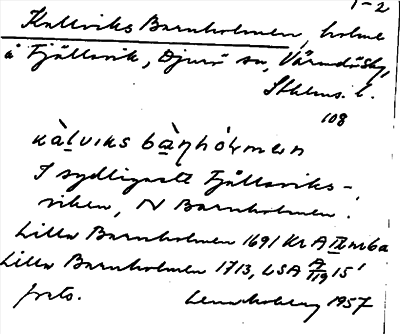 1-2
Kallviks Barnholmen, holme
å Fjällsvik, Djurö sn, Värmdö skg,
Sthlms. l.
108
kàlviks bàŋhólmen
I sydligaste Fjällsviks-
viken, N Barnholmen.
Lilla Barnholmen 1691 Kr A
Lilla Barnholmen 1713, LSA A 119 15¹
forts. 1957